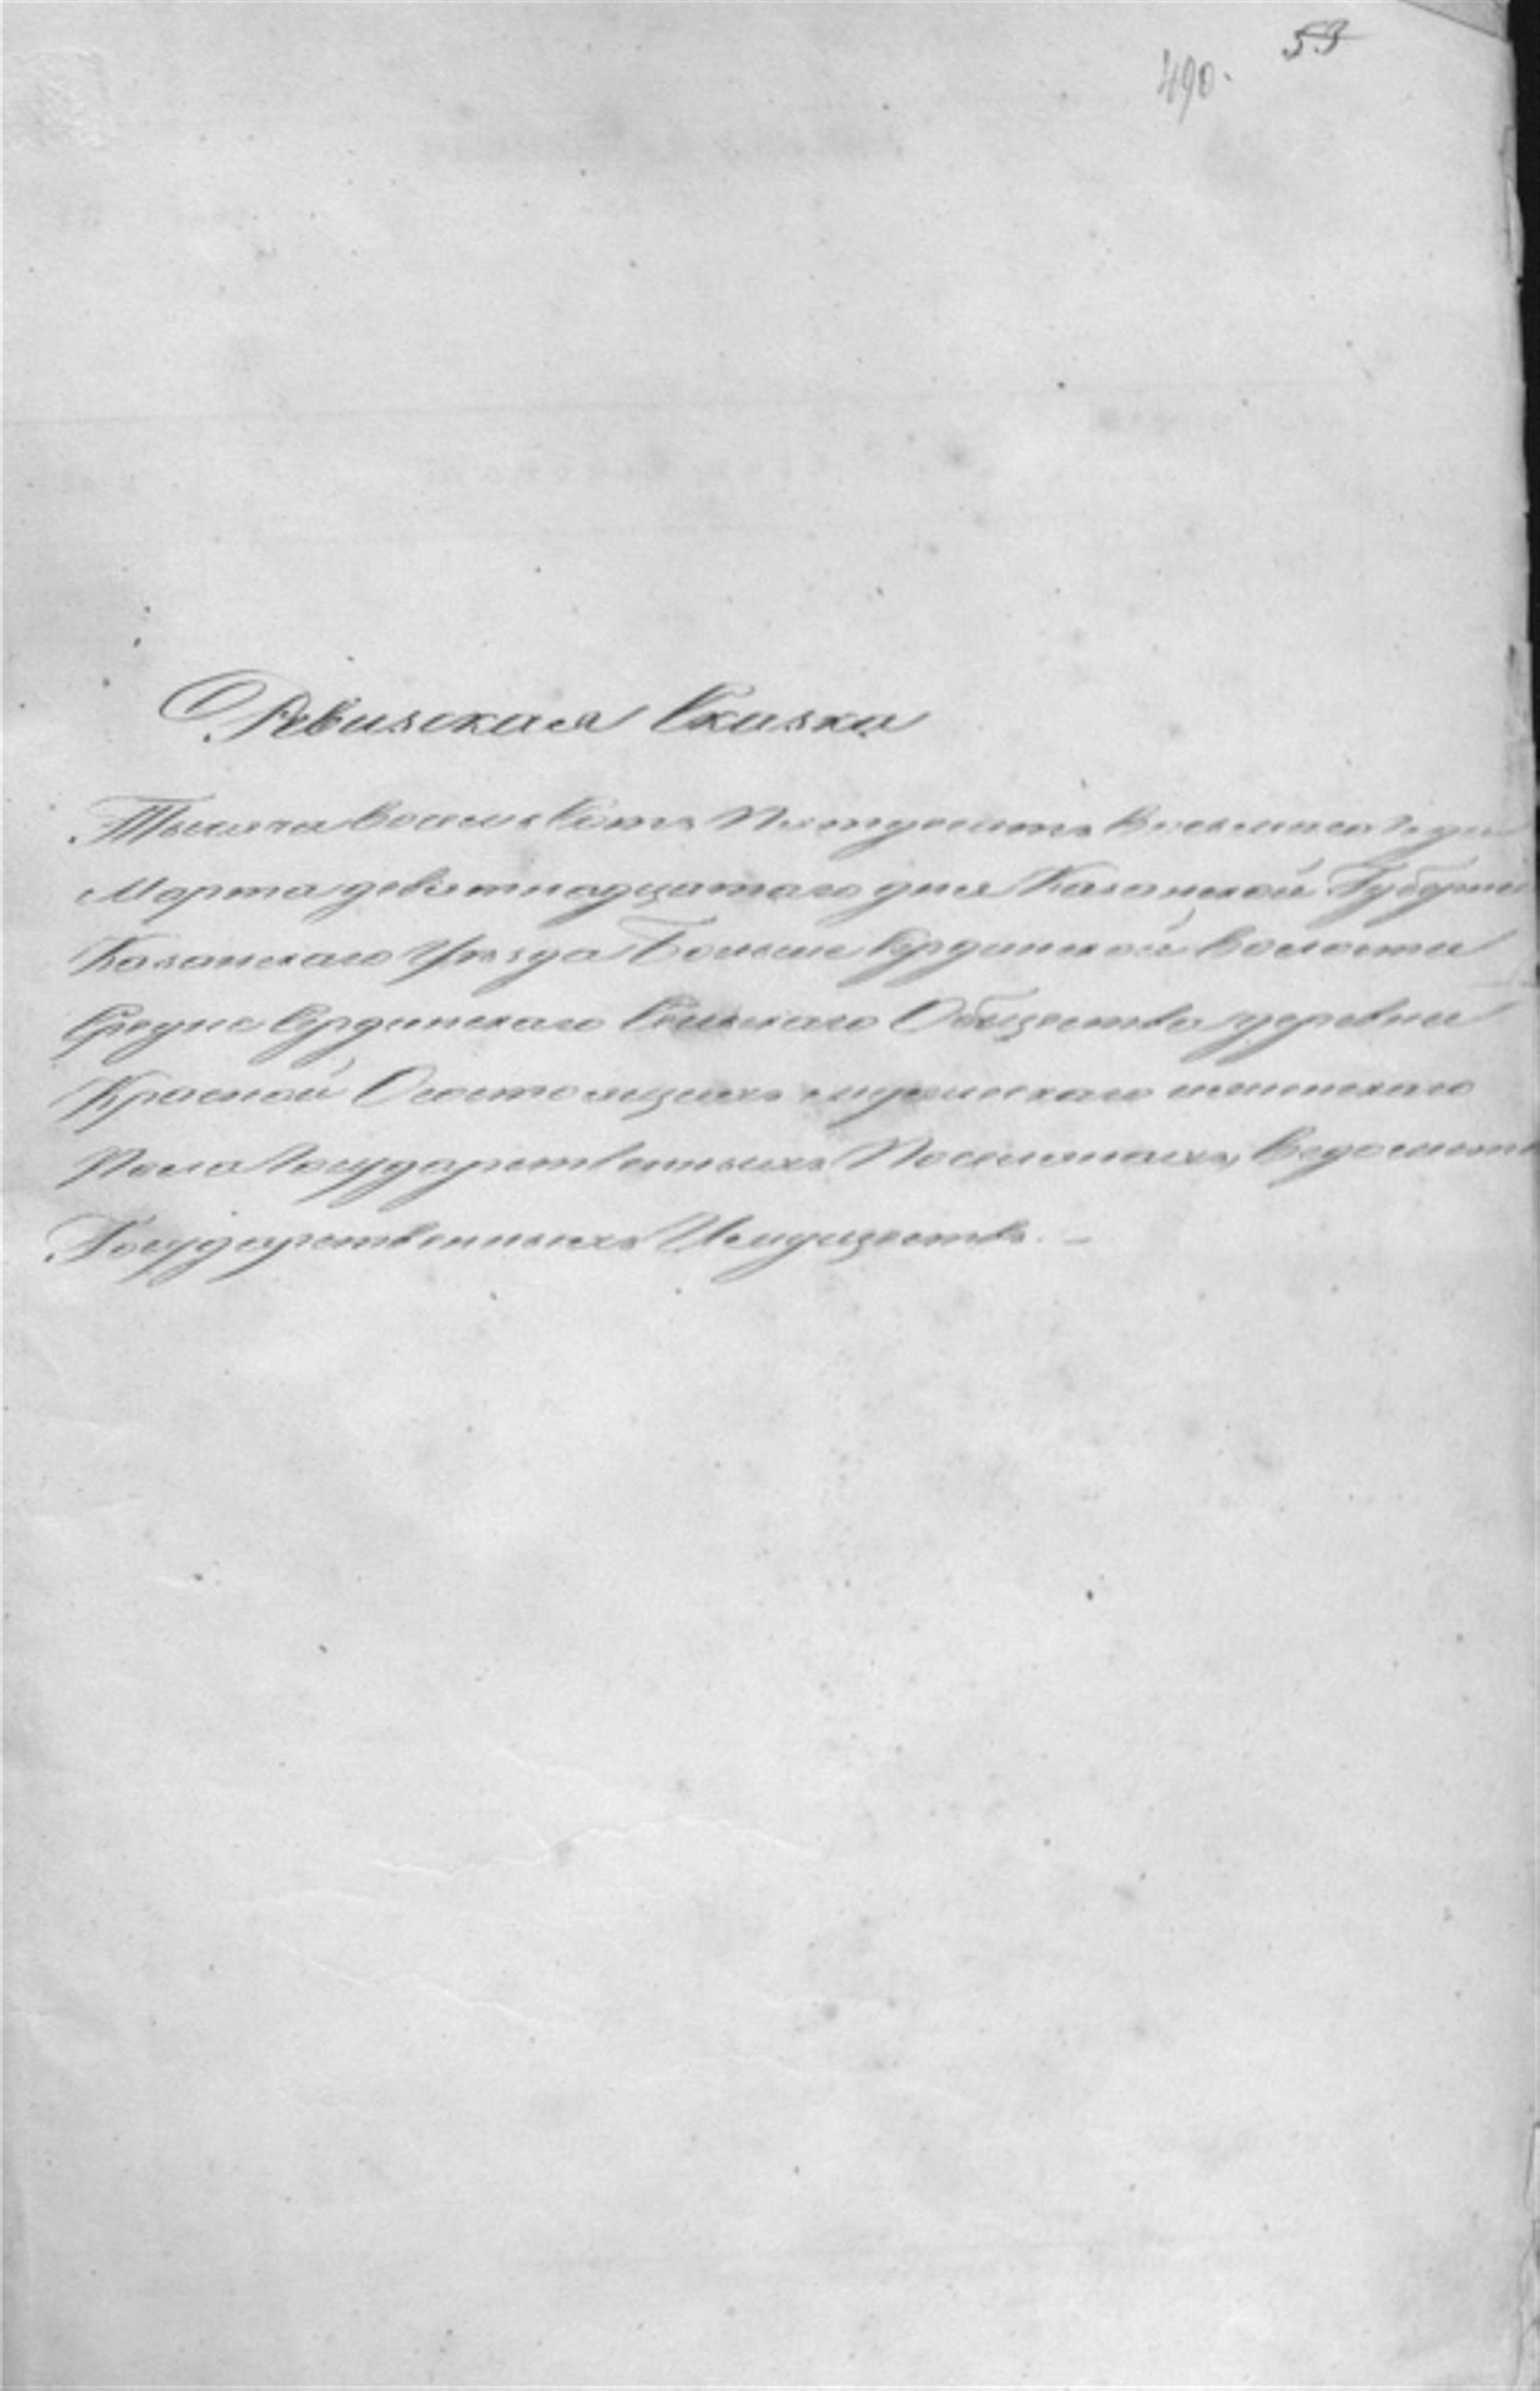 53
490.
Ревизская Сказка
Тысяча восемь сотъ Пятдесятъ восьмаго года
Марта девятнадцатаго дня Казанской Губерніи
Казанскаго Уѣзда Больше Сердинской Волости
Средне Сердинскаго Сельскаго Общества деревни
Красной О состоящихъ мужескаго женскаго
Пола Государственныхъ Поселянахъ, Ведомства
Государственныхъ Имуществъ. –